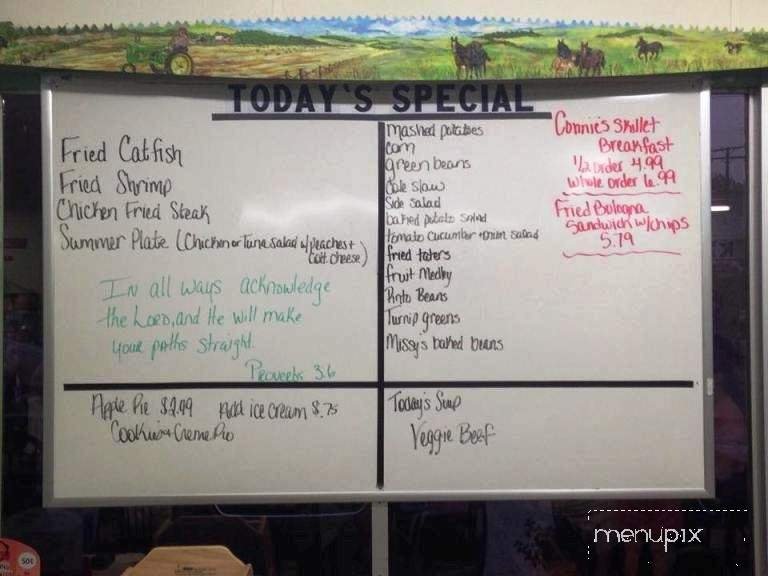 TODAY'S SPECIAL
Fried Catfish
Fried Shrimp
Chicken Fried Steak
Summer Plate (Chicken or Tuna salad w/ peaches +
Cott. cheese)
In all ways acknowledge
the Lord, and He will make
your paths straight.
Proverbs 3:6
Mashed potatoes
corn
green beans
Cole slaw
Side salad
baked potato salad
tomato cucumber + onion salad
fried taters
fruit Medley
Pinto Beans
Turnip greens
Missy's baked beans
Connie's Skillet
Breakfast
1/2 order 4.99
Whole order 6.99
Fried Bologna
Sandwich w/chips
5.79
Apple Pie $2.99 Add ice cream $.75
Cookies + Creme Pie
Today's Soup
Veggie Beef
50¢
menupix